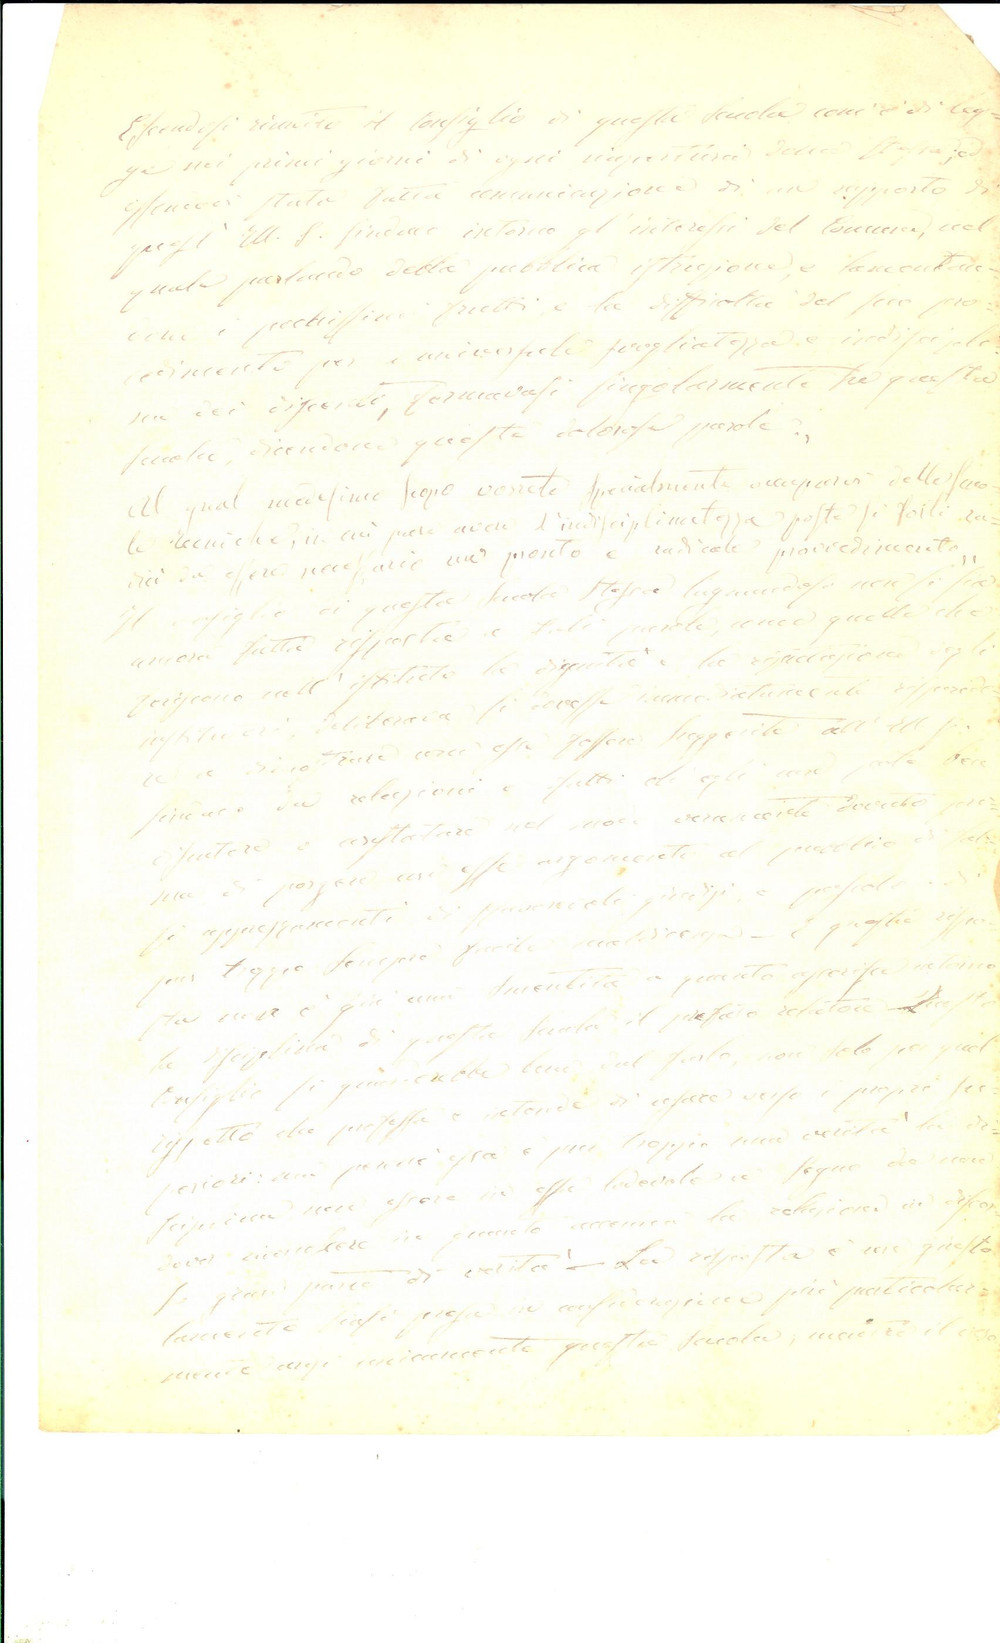 Essendosi riunito il Consiglio di questa Scuola com'è di leg-
ge nei primi giorni di ogni riapertura della stessa, ed
essendovi stata fatta comunicazione di un rapporto di
quest' Ill. S. Sindaco intorno gl'interessi del Comune, nel
quale parlando della pubblica istruzione, e lamentan-
done i pochissimi frutti, e la difficoltà del suo pro-
cedimento per universale svogliatezza e indiscipli-
na dei discenti, fermavasi singolarmente su questa
Scuola, dicendone queste dolorose parole:
Al qual medesimo scopo vorrete specialmente occuparvi delle Scuo-
le tecniche, in cui pare avere l'indisciplinatezza poste sì forti ra-
dici da essere necessario un pronto e radicale provvedimento
Il Consiglio di questa Scuola stessa non si sia
ancora fatta risposta a tali parole, come quelle che
feriscono nell'istituto la dignità e la riputazione degli
istitutori, deliberava si dovesse immediatamente risponde-
re e dimostrare come esse fossero suggerite all' Ill. Sig.
Sindaco da relazioni e fatti ch'egli non potè ben
discutere e constatare nel modo veramente dovuto pri-
ma di porgere con esse argomento al pubblico di fal-
si apprezzamenti, di giudizi, e pascolo di
pur troppo sempre facile maldicenza — E questa rispo-
sta non è già una smentita a quanto asserisce intorno
la disciplina di questa Scuola il prefato relatore — Questo
Consiglio si guarderebbe bene dal farlo, non solo per quel
rispetto che professa e intende di usare verso i propri su-
periori: ma perchè essa è pur troppo una verità la di-
sciplina non essere in essa lodevole a segno da non
dover riconoscere in quanto accenna la relazione in discor-
so gran parte di verità — La risposta è che questo
lamento siasi preso in considerazione più particolar-
mente anzi unicamente questa Scuola, mentre il